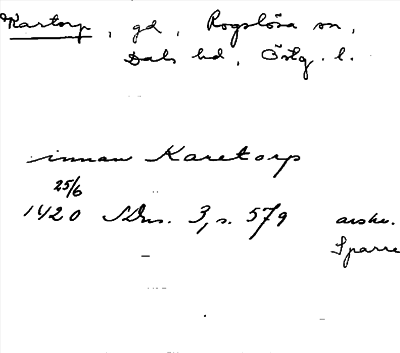 Kartorp, gd, Rogslösa sn,
Dals hd, Östg. l.
innan Karetorp
25/6
1420 SDns. 3, s. 579 avskr.
Sparre